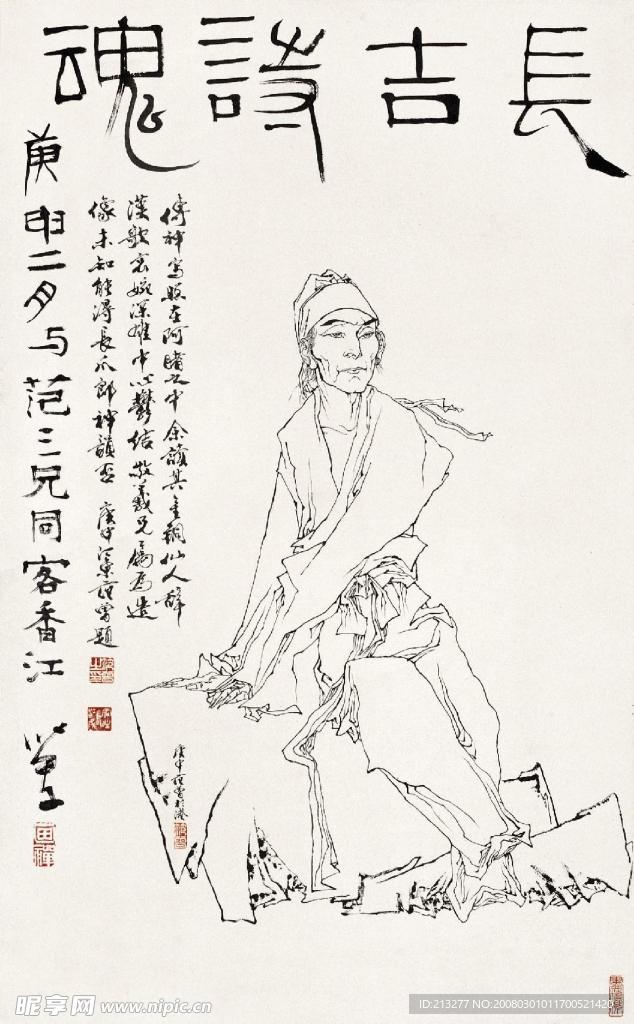 長吉詩魂
傳神寫照在阿睹之中余讀其金銅仙人辭
漢歌哀婉深雄中心鬱結敬羲兄屬爲造
像未知能得長爪郎神韻否 庚申江東范曾題
庚申二月与范三兄同客香江
庚申范曾於港
昵享网 www.nipic.cn
ID:213277 NO:20080301011700521420